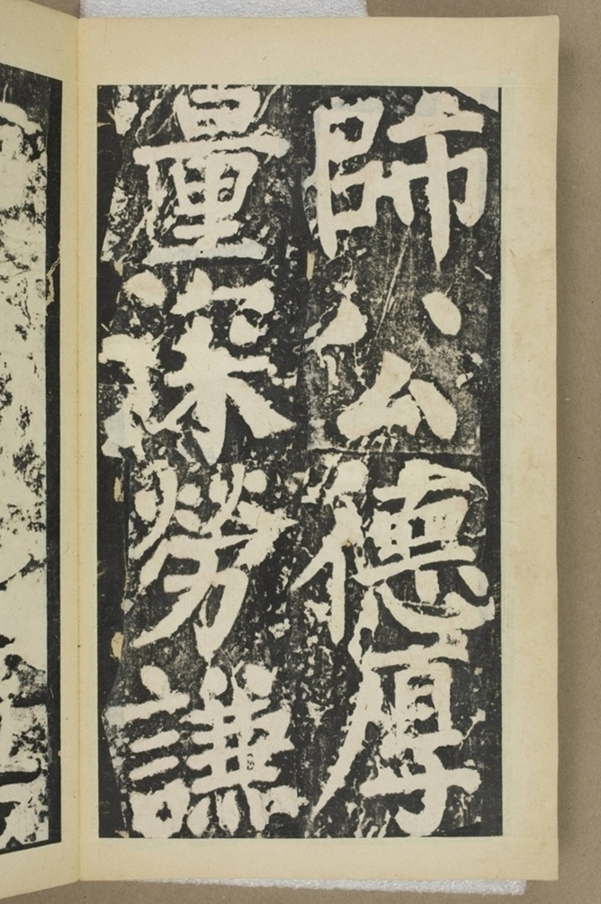 師公德厚
量深勞謙